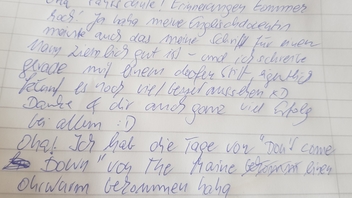 Oha, Fahrschule! Erinnerungen kommen
hoch! Ja haha meine Englischdozentin
meinte auch das meine Schrift für einen
Mann ziemlich gut ist - und ich schreibe
grade mit einem doofen Stift, eigentlich
es noch viel besser aussehen xD
Danke & dir auch ganz viel Erfolg
bei allem :D
Oha! Ich hab die Tage von "Don't come
Down" von The Maine einen
Ohrwurm bekommen haha